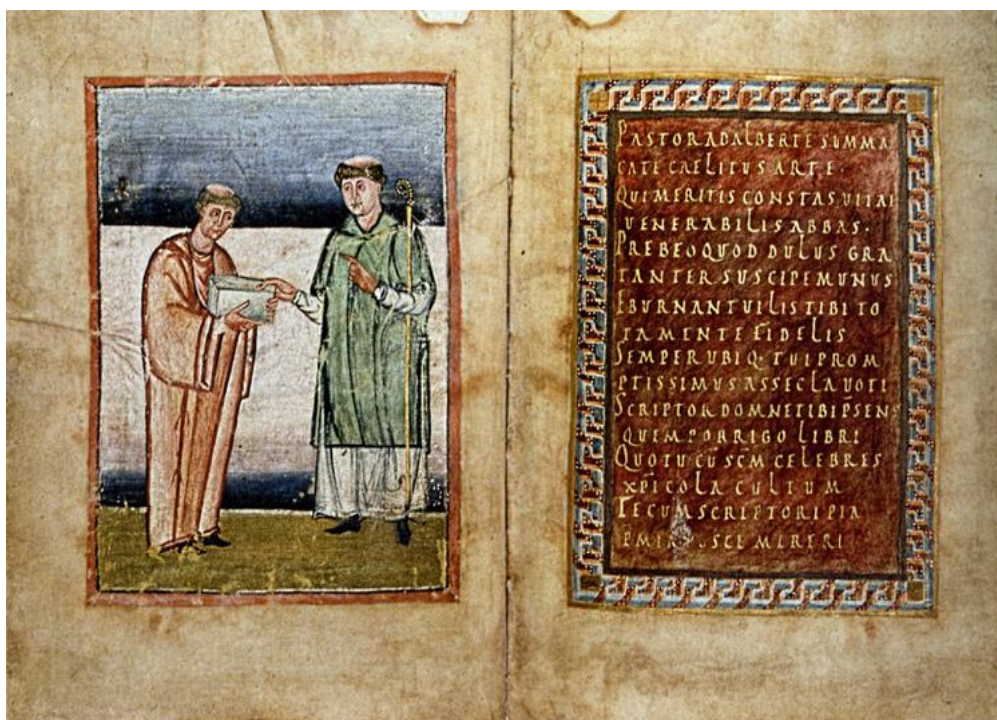 PASTOR ADALBERTE SUMMA
CATE CAELITUS ARTE·
QUI MERITIS CONSTAS
UENERABILIS ABBAS·
PREBEO QUOD DULUS GRA
TANTER SUSCIPE MUNUS
EBURNANT UILIS TIBI TO
TA MENTE FIDELIS
SEMPER UBIQ· TUI PROM
PTISSIMUS ASSECLA UOTI
SCRIPTOR DOMNE TIBI PSENS
QUEM PORRIGO LIBRI
QUO TU CU SCM CELEBRES
XPICOLA CULTUM
TECUM SCRIPTORI PIA
MERERI